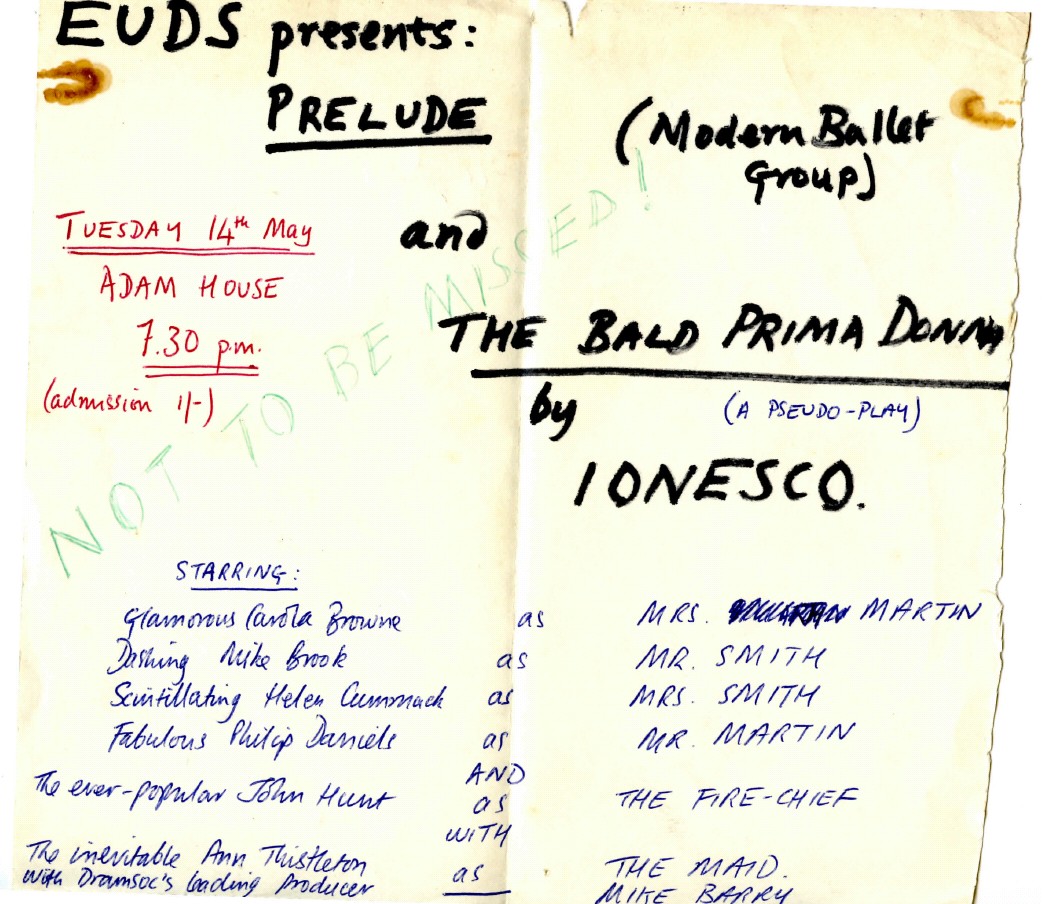 EUDS presents:
PRELUDE
(Modern Ballet
Group)
TUESDAY 14th May
and
ADAM HOUSE
7.30 p.m.
(admission 1/-)
NOT TO BE MISSED!
THE BALD PRIMA DONNA
by
(A PSEUDO-PLAY)
IONESCO.
STARRING:
Glamorous Carola Browne as MRS. MARTIN
Dashing Mike Brook as MR. SMITH
Scintillating Helen Cummack as MRS. SMITH
Fabulous Philip Daniels as MR. MARTIN
AND
The ever-popular John Hunt as THE FIRE-CHIEF
WITH
The inevitable Ann Thistleton as THE MAID.
with Dramsoc's leading Producer MIKE BARRY